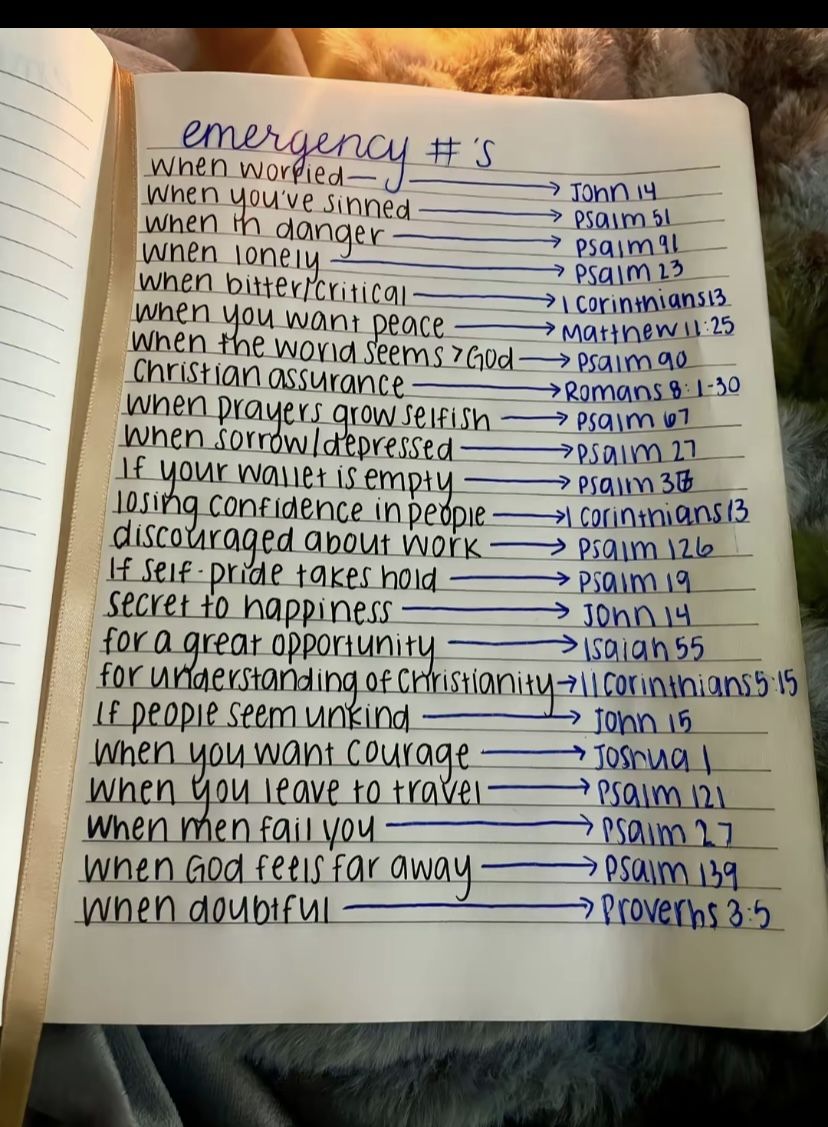 emergency #'s
when worried → John 14
when you've sinned → psalm 51
when in danger → psalm 91
when lonely → psalm 23
when bitter/critical → 1 corinthians 13
when you want peace → Matthew 11:25
when the world seems > God → psalm 90
Christian assurance → Romans 8:1-30
when prayers grow selfish → psalm 67
when sorrow/depressed → psalm 27
If your wallet is empty → psalm
losing confidence in people → 1 corinthians 13
discouraged about work → psalm 126
If self-pride takes hold → psalm 19
secret to happiness → John 14
for a great opportunity → Isaiah 55
for understanding of Christianity → 11 Corinthians 5:15
If people seem unkind → John 15
when you want courage → Joshua 1
when you leave to travel → psalm 121
when men fail you → psalm 27
when God feels far away → psalm 139
when doubtful → Proverbs 3:5